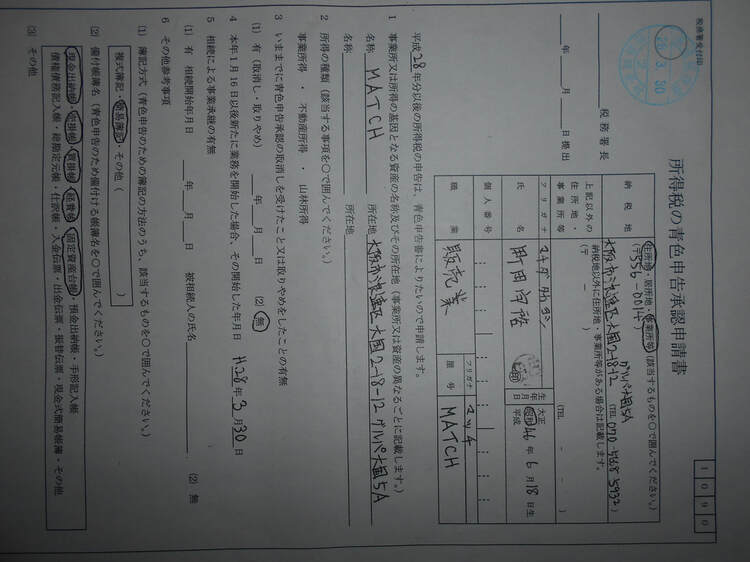 税務署受付印
28.3.30
1090
所得税の青色申告承認申請書
税務署長
年 月 日提出
納税地
住所地・居所地・事業所等(該当するものを○で囲んでください。)
(〒556-0014)
大阪市浪速区大国2-18-12 グルパ大国5A
(TEL 070-468-5932)
上記以外の住所地・事業所等
納税地以外に住所地・事業所等がある場合は記載します。
(〒 - )
(TEL - - )
フリガナ
氏名
生年月日
大正
昭和
平成
46年6月18日生
個人番号
職業
販売業
フリガナ
マッチ
屋号
MATCH
平成28年分以後の所得税の申告は、青色申告書によりたいので申請します。
1 事業所又は所得の基因となる資産の名称及びその所在地(事業所又は資産の異なるごとに記載します。)
名称 MATCH 所在地 大阪市浪速区大国2-18-12 グルパ大国5A
名称 所在地
2 所得の種類(該当する事項を○で囲んでください。)
事業所得 ・ 不動産所得 ・ 山林所得
3 いままでに青色申告承認の取消しを受けたこと又は取りやめをしたことの有無
(1) 有(取消し・取りやめ) 年 月 日 (2) 無
4 本年1月16日以後新たに業務を開始した場合、その開始した年月日 H28年3月30日
5 相続による事業承継の有無
(1) 有 相続開始年月日 年 月 日 被相続人の氏名 (2) 無
6 その他参考事項
(1) 簿記方式(青色申告のための簿記の方法のうち、該当するものを○で囲んでください。)
複式簿記・簡易簿記・その他( )
(2) 備付帳簿名(青色申告のため備付ける帳簿名を○で囲んでください。)
現金出納帳・売掛帳・買掛帳・経費帳・固定資産台帳・預金出納帳・手形記入帳
債権債務記入帳・総勘定元帳・仕訳帳・入金伝票・出金伝票・振替伝票・現金式簡易帳簿・その他
(3) その他